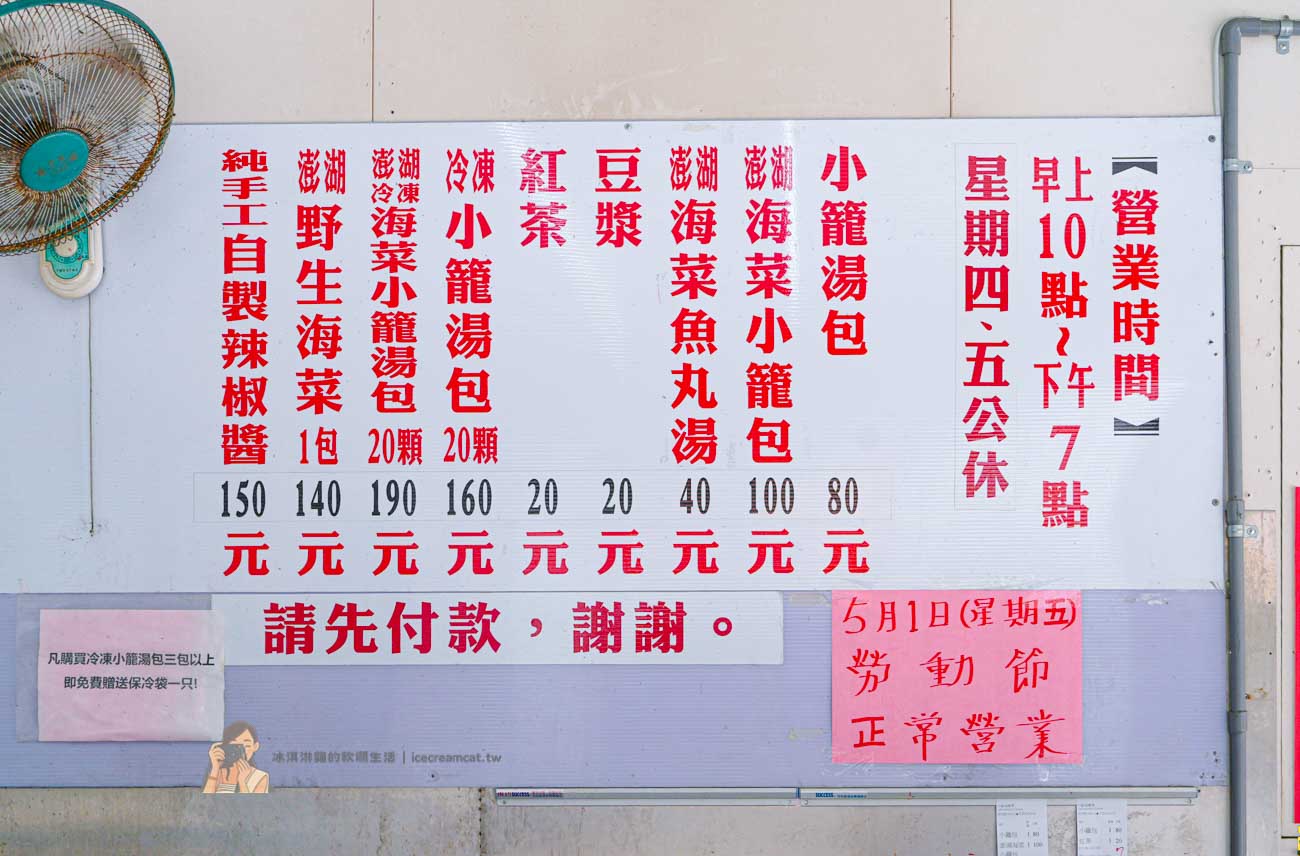 【營業時間】
早上10點~下午7點
星期四、五公休
小籠湯包 80元
澎湖海菜小籠包 100元
澎湖海菜魚丸湯 40元
豆漿 20元
紅茶 20元
冷凍小籠湯包20顆 160元
澎湖冷凍海菜小籠湯包20顆 190元
澎湖野生海菜1包 140元
純手工自製辣椒醬 150元
請先付款，謝謝。
凡購買冷凍小籠湯包三包以上
即免費贈送保冷袋一只!
5月1日(星期五)
勞動節
正常營業
冰淇淋貓的軟爛生活 | icecreamcat.tw
SUCCESS
SUCCESS